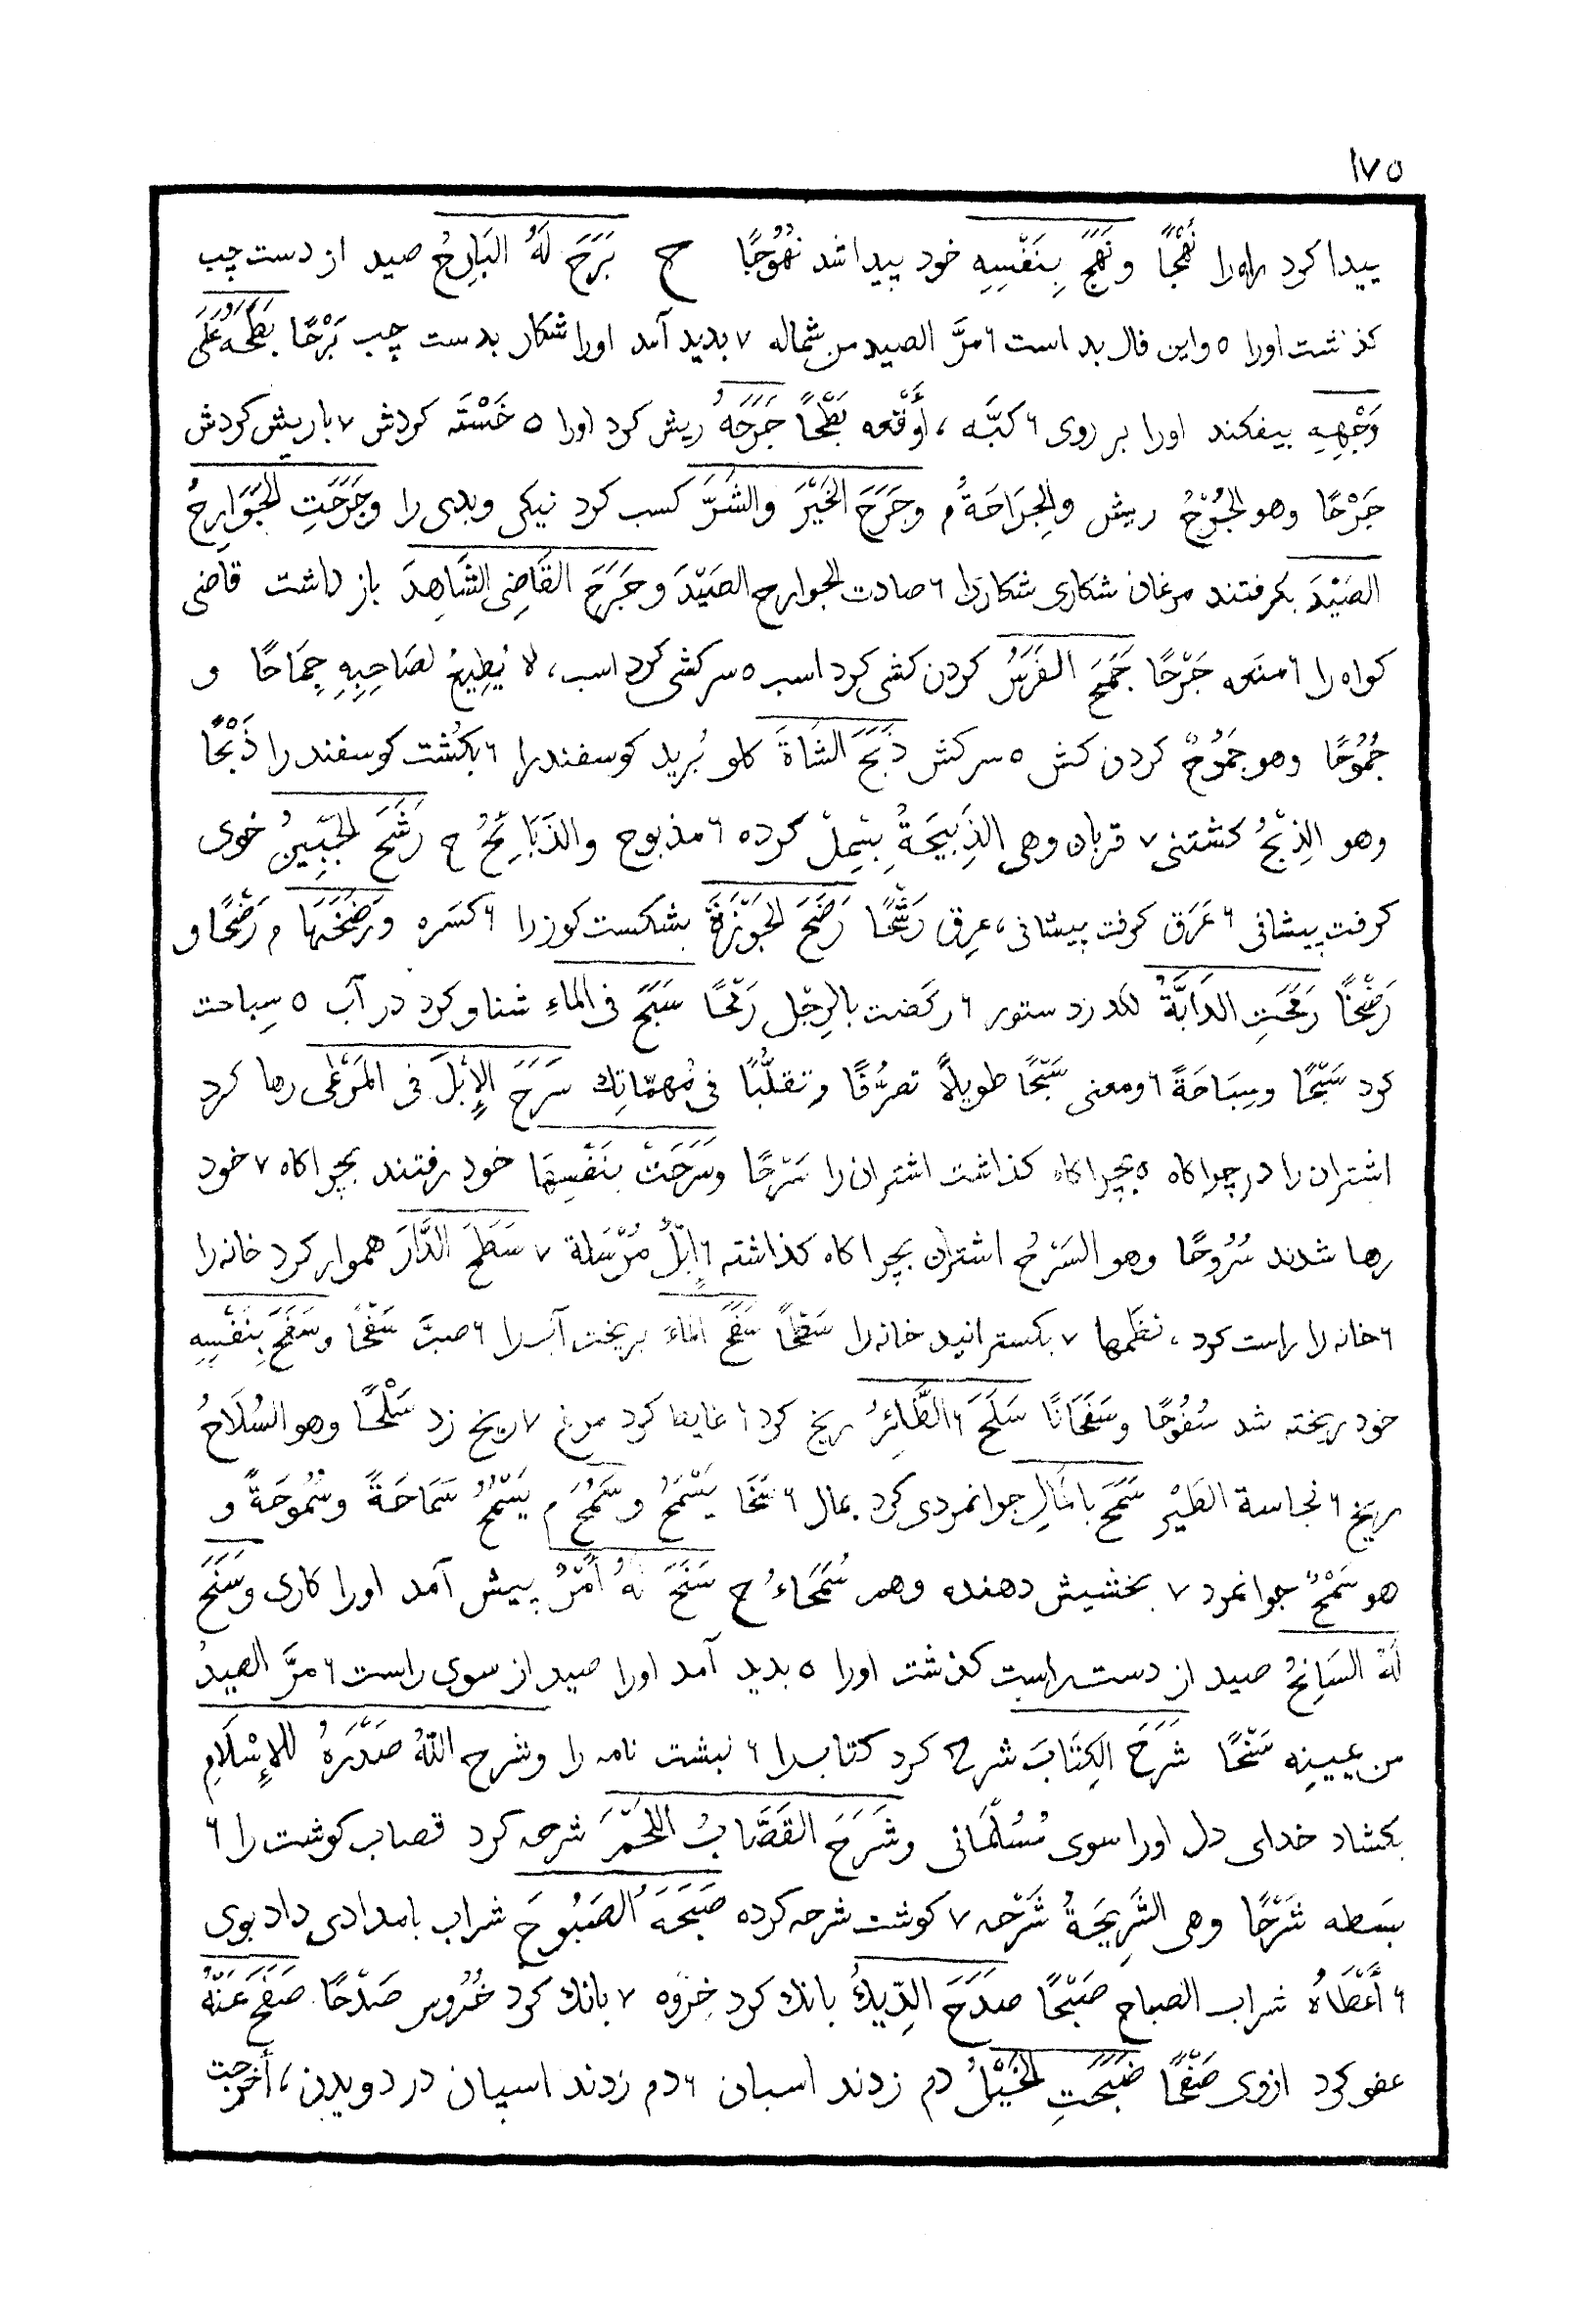 ١٧٥
پیدا کرد راه را نَهْجًا وَنَهَجَ بِنَفْسِهِ خود پیدا شد نُهُوْجًا ح بَرَحَ لَهُ البَارِحُ صید از دست چپ
کذشت اورا ٥ واین فال بد است ٦ مرَّ الصید من شماله ٧ بدید آمد اورا شکار بدست چپ بَرْحًا بَطَحَهُ عَلَى
وَجْهِهِ بیفکند اورا بر روی ٦ کبَّه ، أَوْقَعه بَطْحًا جَرَحَهُ ریش کرد اورا ٥ خَسْتَه کردش ٧ باریش کردش
جَرْحًا وهو الجُرْحُ ریش والجِرَاحَةُ م وجَرَحَ الخَيْرَ والشَرَّ کسب کرد نیکی وبدی را وجَرَحَتِ الجَوَارِحُ
الصَيْدَ بکرفتند مرغان شکاری شکاررا ٦ صادت الجوارح الصَيْدَ وجَرَحَ القَاضِى الشَاهِدَ باز داشت قاضی
کواه را ٦ منعه جَرْحًا جَمَحَ الفَرَسُ کردن کشی کرد اسب ٥ سرکشی کرد اسب ، لا يُطِيعُ لصَاحِبِهِ جِمَاحًا و
جُمُوْحًا وهو جَمُوْحٌ کردن کش ٥ سرکش ذَبَحَ الشَاةَ کلو بُرید کوسفندرا ٦ بکُشت کوسفند را ذَبْحًا
وهو الذِبْحُ کشتنی ٧ قربان وهی الذَبِيحَةُ بِسْمِلْ کرده ٦ مذبوح والذَبَائِحُ ح رَشَحَ الجَبِيْنُ خوی
کرفت پیشانی ٦ عَرَق کرفت پیشانی ، عرِق رَشْحًا رَضَحَ الجَوْزَةَ بشکست کوزرا ٦ کسَره ورَضَخَهَا م رَضْحًا و
رَضْخًا رَمَحَتِ الدَابَّةُ لکد زد ستور ٦ رکَضت بالرِجْل رَمْحًا سَبَحَ فی الماءِ شنا وکرد در آب ٥ سِباحت
کرد سَبْحًا وسِبَاحَةً ٦ ومعنى سَبْحًا طويلاً تصرُّفًا وتقلُّبًا فى مُهمّاتِك سَرَحَ الإِبْلَ فى المَرْعَى رها کرد
اشتران را در چراکاه ٥ بچراکاه کذاشت اشتران را سَرْحًا وسَرَحَتْ بِنَفْسِهَا خود رفتند بچراکاه ٧ خود
رها شدند سُرُوحًا وهو السَرْحُ اشتران بچراکاه کذاشته ٦ إِبْلٌ مُرْسَلة ٧ سَطَحَ الدَّارَ هموار کرد خانه را
٦ خانه را راست کرد ، نظّمها ٧ بکسترانید خانه را سَطْحًا سَفَحَ الماءَ بریخت آب را ٦ صبَّ سَفْحًا وسَفَحَ بِنَفْسِهِ
خود ریخته شد سُفُوْحًا وسَفَحَانًا سَلَحَ الطَّائِرُ ریخ کرد ٦ غایط کرد مرغ ٧ ریخ زد سَلْحًا وهو السُلَاحُ
ریخ ٦ نجاسة الطَيْرِ سَمَحَ بالمَالِ جوانمردی کرد بمال ٦ سَخَا يَسْمَحُ وسَمُحَ م يَسْمُحُ سَمَاحَةً وسُمُوحَةً و
هو سَمْحٌ جوانمرد ٧ بخشیش دهنده وهم سُمَحَاءُ ح سَنَحَ لَهُ أَمْرٌ پیش آمد اورا کاری وسَنَحَ
لَهُ السَانِحُ صید از دست راست کذشت اورا ٥ بدید آمد اورا صید از سوی راست ٦ مرَّ الصیدُ
من یمینِه سَنْحًا شَرَحَ الكِتَابَ شرح کرد کتاب را ٦ نبشت نامه را وشرح اللهُ صَدْرَهُ للإِسْلَامِ
بکشاد خدای دل اورا سوی مُسُلْمانی وشَرَحَ القَصَّابُ اللَحْمَ شرحه کرد قصاب کوشت را ٦
بسَطه شَرْحًا وهی الشَرِيحَةُ شَرْحه ٧ کوشت شرحه کرده صَبَحَهُ الصَبُوحَ شراب بامدادی داد بوی
٦ أَعْطَاهُ شراب الصباح صَبْحًا صَدَحَ الدِيكُ بانك کرد خِرُوه ٧ بانك کرد خُرُوس صَدْحًا صَفَحَ عَنْهُ
عفو کرد ازوی صَفْحًا ضَبَحَتِ الخَيْلُ دم زدند اسبان ٦ دم زدند اسپان در دویدن ، أخرجت